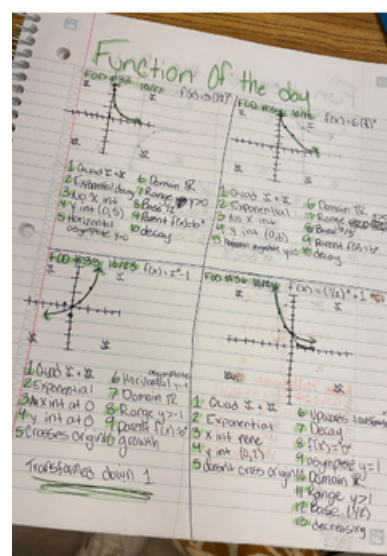 Function Of the day
FOD #33 10/17 f(x)=5(½)ˣ
1 Quad I + II
2 Exponential decay
3 No X int
4 Y int (0,5)
5 Horizontal
asymptote y=0
6 Domain ℝ
7 Range y>0
8 Base ½
9 Parent f(x)=bˣ
10 decay
FOD
1 Quad I + II
2 Exponential
3 No X int
4 Y int (0,6)
6 Domain ℝ
7 Range
8 Base
9 Parent f(x)=bˣ
10 decay
FOD #35 10/23 f(x)=2ˣ-1
1 Quad I +
2 Exponential
3 X int at 0
4 y int at 0
5 Crosses origin
6 Horizontal asymptote y=-1
7 Domain ℝ
8 Range y>-1
9 parent f(x)=bˣ
10 growth
Transformed down 1
FOD #36 f(x)=(½)ˣ+1
1 Quad I + II
2 Exponential
3 X int none
4 Y int (0,2)
5 doesn't cross origin
6 Upwards
7 Decay
8 f(x)=bˣ
9 asymptote y=1
10 Domain ℝ
11 Range y>1
12 Base (½)
13 decreasing